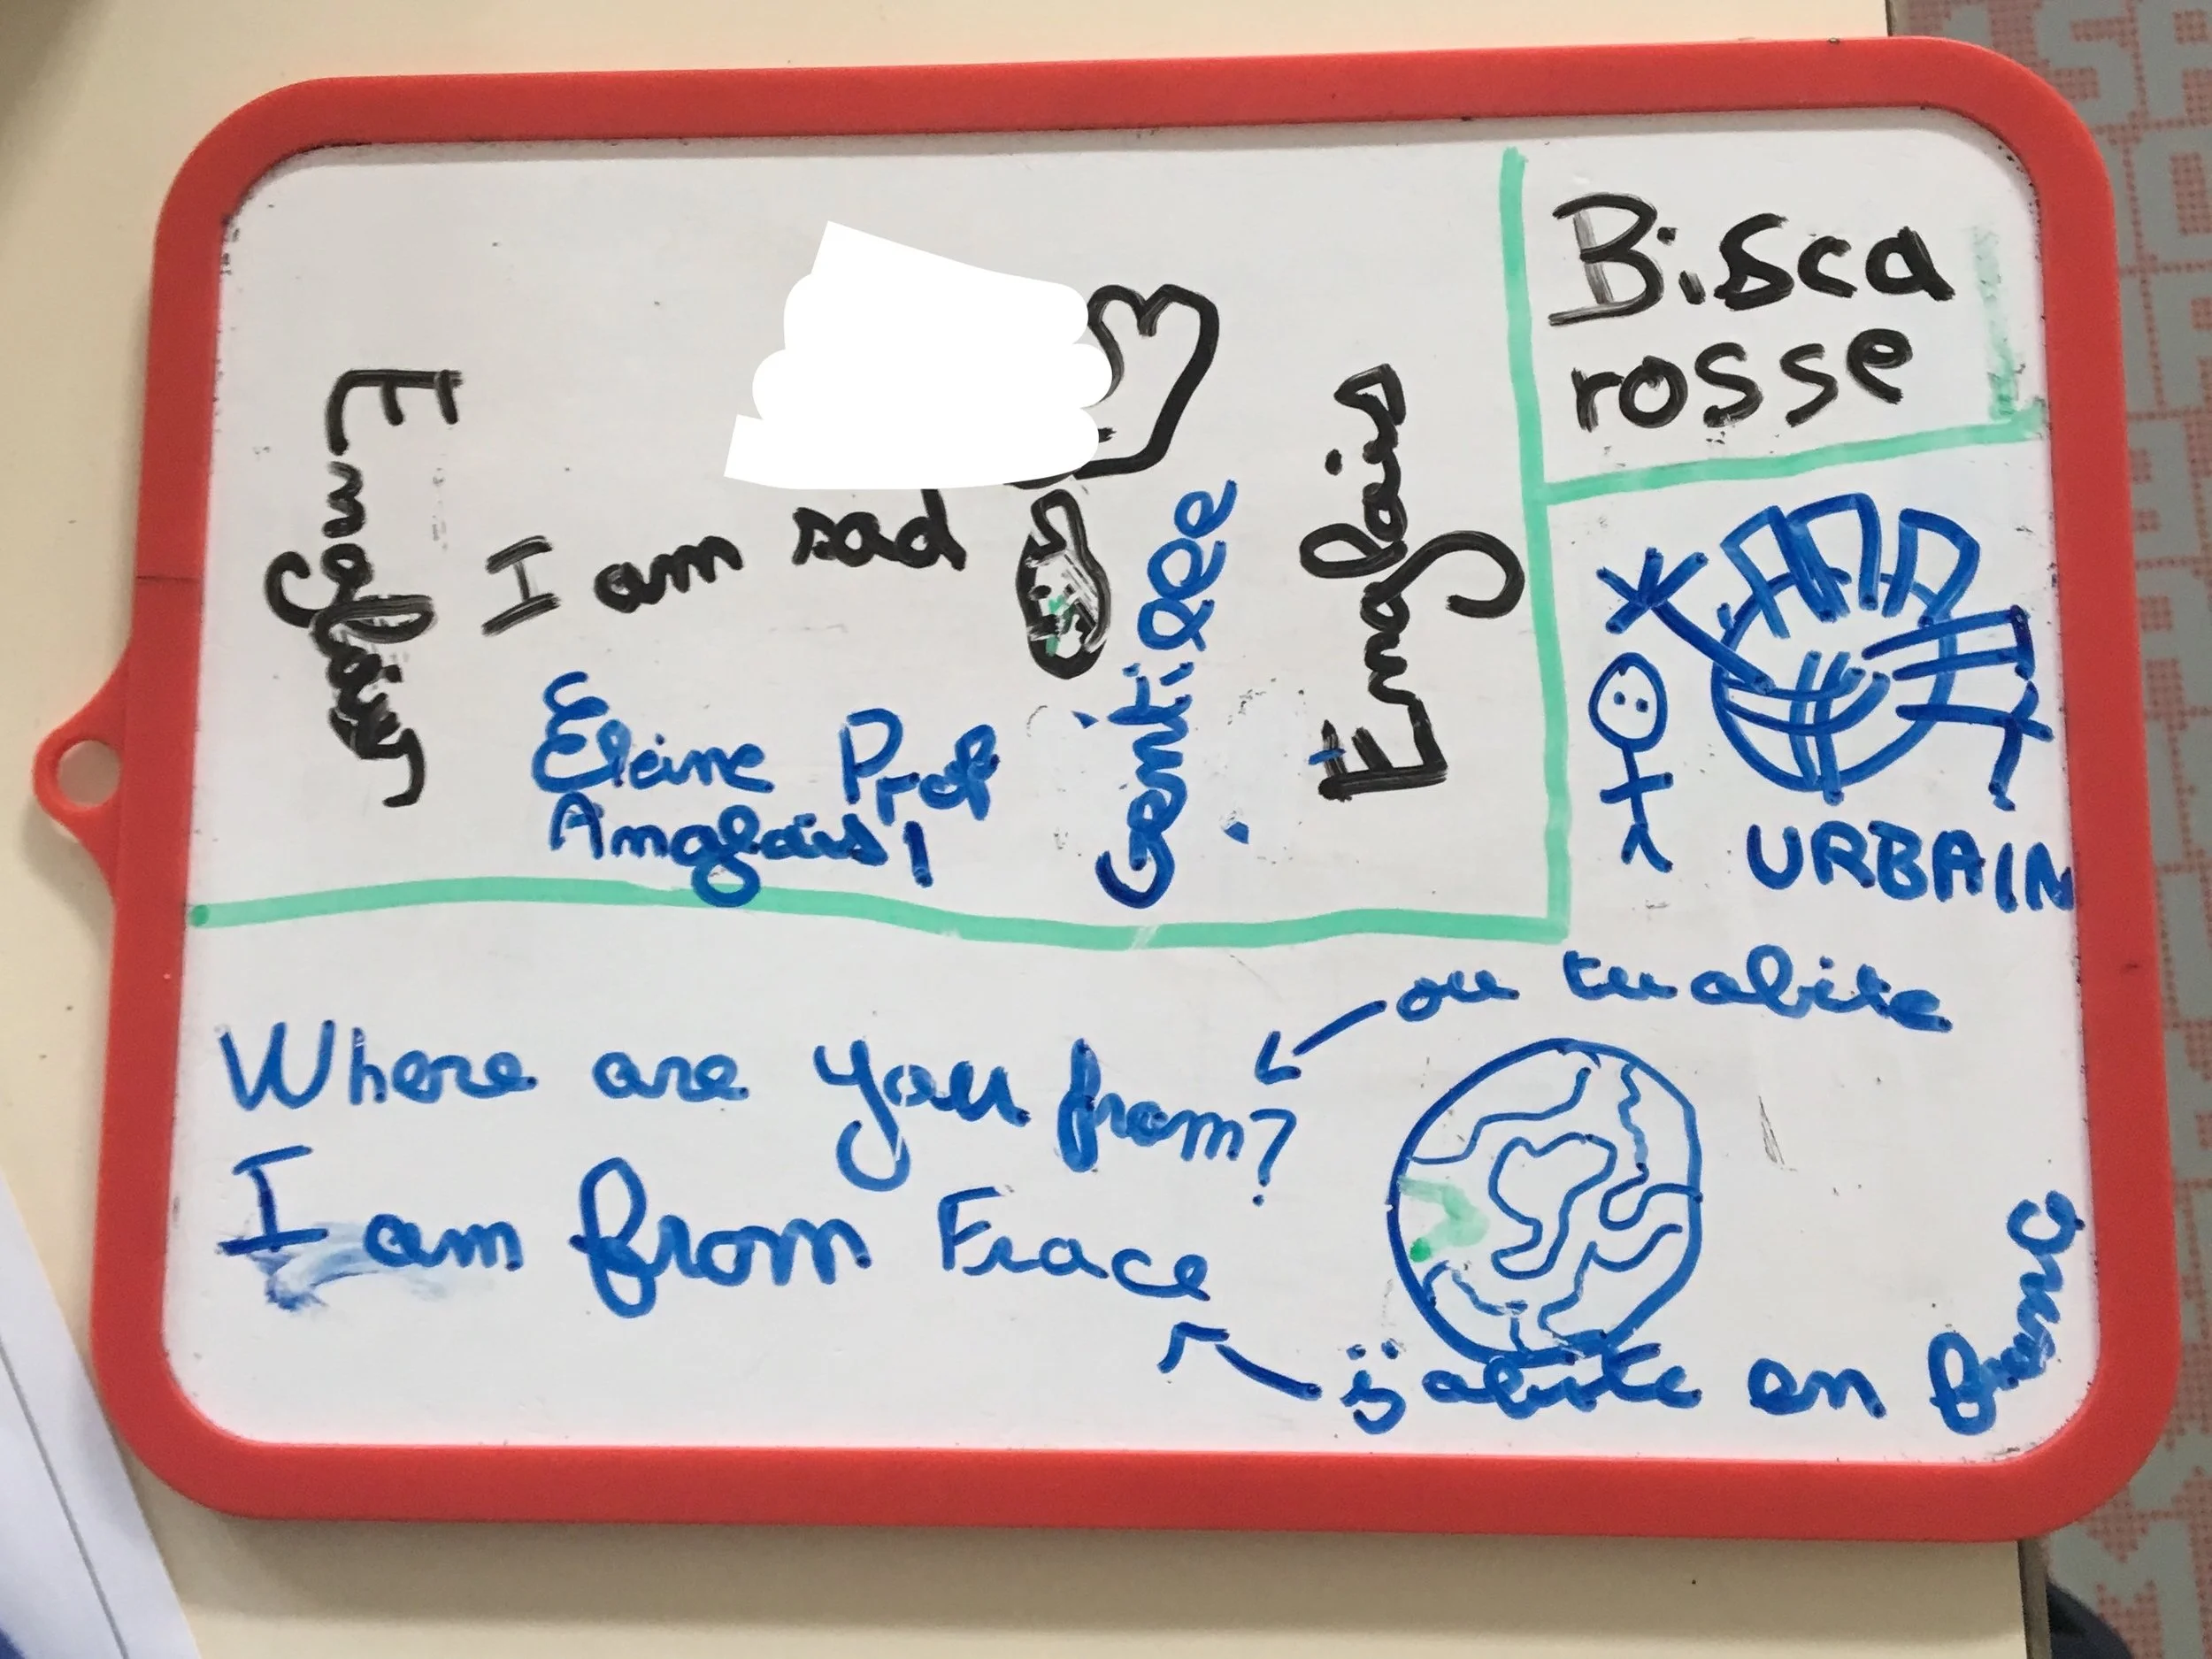 Bisca
rosse
I am sad
Englais
Elaine Prof
Anglais !
gentille
URBAIN
ou tu abite
Where are you from?
I am from Frace
j abite en france